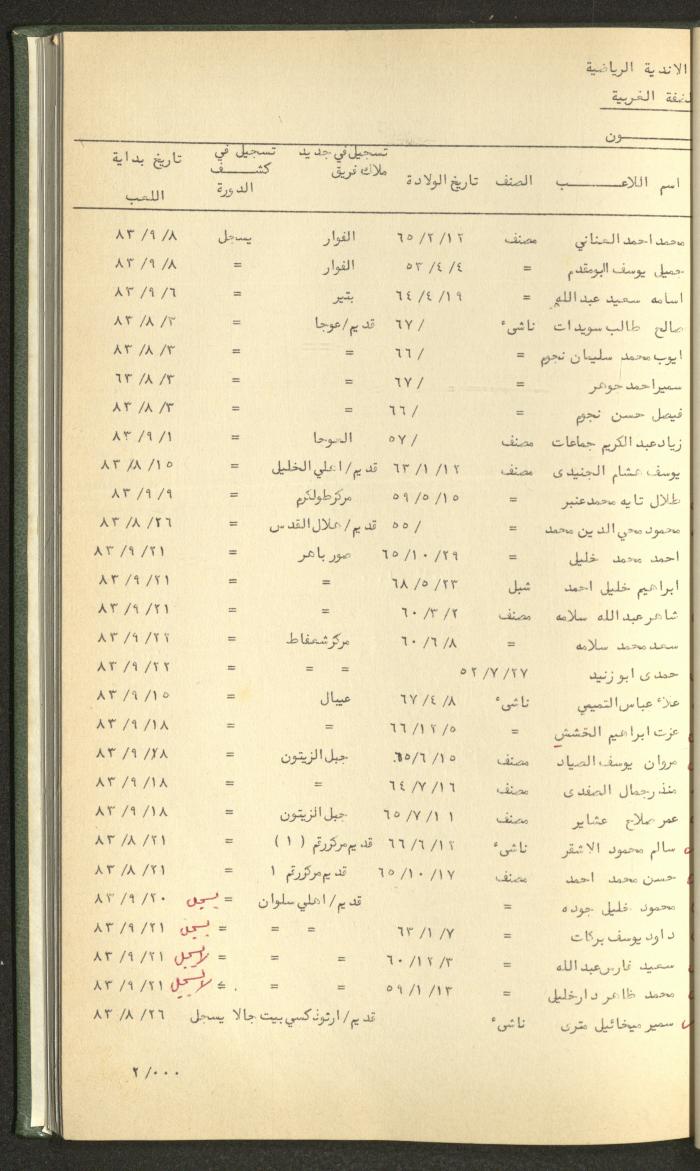 الاندية الرياضية
لضفة الغربية
ـــون
اسم اللاعـــب الصنف تاريخ الولادة تسجيل في جديد ملاك فريق تسجيل في كشف الدورة تاريخ بداية اللعب
محمد احمد العناني مصنف ٦٥/٢/١٢ الفوار يسجل ٨٣/٩/٨
جميل يوسف ابومقدم = ٥٣/٤/٤ الفوار = ٨٣/٩/٨
اسامه سعيد عبدالله = ٦٤/٤/١٩ بتير = ٨٣/٩/٦
صالح طالب سويدات ناشىء ٦٧/ قديم/عوجا = ٨٣/٨/٣
ايوب محمد سليمان نجوم = ٦٦/ = = ٨٣/٨/٣
سمير احمد جوهر = ٦٧/ = = ٦٣/٨/٣
فيصل حسن نجوم = ٦٦/ = = ٨٣/٨/٣
زياد عبد الكريم جماعات مصنف ٥٧/ العوجا = ٨٣/٩/١
يوسف هشام الجنيدى مصنف ٦٣/١/١٢ قديم/اهلي الخليل = ٨٣/٨/١٥
طلال تايه محمد عنبر = ٥٩/٥/١٥ مركز طولكرم = ٨٣/٩/٩
محمود محي الدين محمد = ٥٥/ قديم/هلال القدس = ٨٣/٨/٢٦
احمد محمد خليل = ٦٥/١٠/٢٩ صور باهر = ٨٣/٩/٢١
ابراهيم خليل احمد شبل ٦٨/٥/٢٣ = = ٨٣/٩/٢١
شاهر عبد الله سلامه مصنف ٦٠/٣/٢ = = ٨٣/٩/٢١
سعد محمد سلامه = ٦٠/٦/٨ مركز شعفاط = ٨٣/٩/٢٢
حمدى ابو زنيد ٥٢/٧/٢٧ = = = ٨٣/٩/٢٢
علاء عباس التميمي ناشىء ٦٧/٤/٨ عيبال = ٨٣/٩/١٥
عزت ابراهيم الخشش = ٦٦/١٢/٥ = = ٨٣/٩/١٨
مروان يوسف الصياد مصنف ٦٥/٦/١٥ جبل الزيتون = ٨٣/٩/٢٨
منذر جمال الصفدى مصنف ٦٤/٧/١٦ = = ٨٣/٩/١٨
عمر صلاح عشاير مصنف ٦٥/٧/١١ جبل الزيتون = ٨٣/٩/١٨
سالم محمود الاشقر ناشىء ٦٦/٦/١٢ قديم مركز رقم (١) = ٨٣/٨/٢١
حسن محمد احمد مصنف ٦٥/١٠/١٧ قديم مركز رقم ١ = ٨٣/٨/٢١
محمود خليل جوده = قديم/اهلي سلوان = يسجل ٨٣/٩/٢٠
داود يوسف بركات = ٦٣/١/٧ = = = يسجل ٨٣/٩/٢١
سعيد فارس عبدالله = ٦٠/١٢/٣ = = = لا يسجل ٨٣/٩/٢١
محمد ظاهر دار خليل = ٥٩/١/١٣ = = = لا يسجل ٨٣/٩/٢١
سمير ميخائيل مترى ناشىء قديم/ارثوذكسي بيت جالا يسجل ٨٣/٨/٢٦
٢/٠٠٠